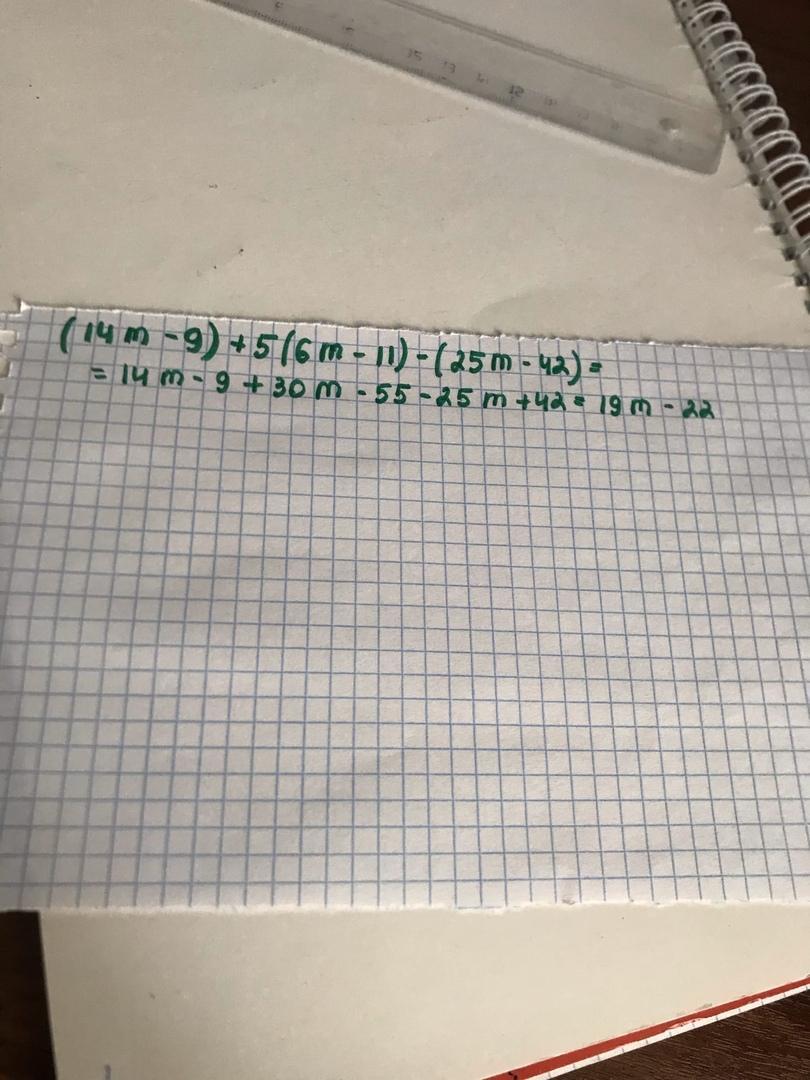 (14m - 9) + 5(6m - 11) - (25m - 42) =
= 14m - 9 + 30m - 55 - 25m + 42 = 19m - 22